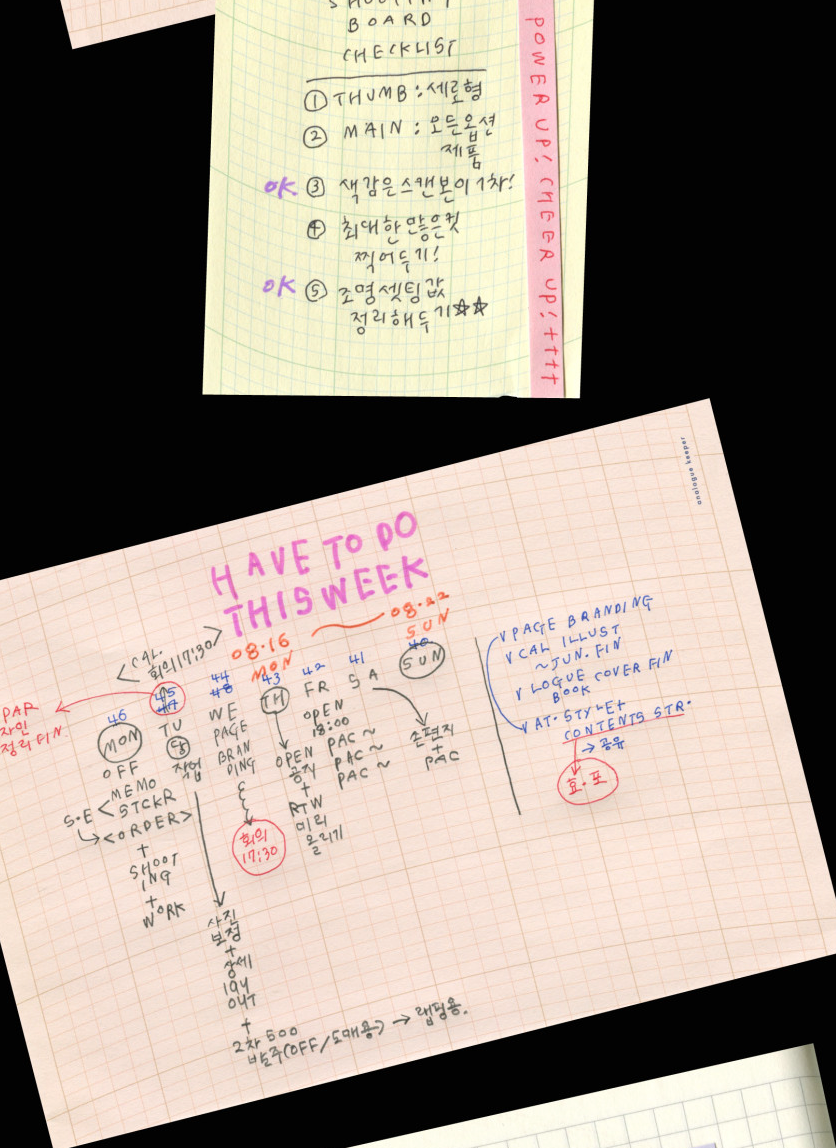 BOARD
CHECKLIST
① THUMB : 세로형
② MAIN : 모든옵션
제품
OK. ③ 색감은 스캔본이 1차!
④ 최대한 많은컷
찍어두기!
OK ⑤ 조명셋팅값
정리해두기☆☆
POWER UP! CHEER UP! ++++
analogue keeper
HAVE TO DO
THIS WEEK
08.16
MON
08.22
SUN
<CAL.
회의17:30>
PAR
자인
정리 FIN
46
MON
OFF
MEMO
S.E < STCKR
<ORDER>
+
SHOOT
ING
+
WORK
45
47
TU
작업
사진
보정
+
상세
lay
out
+
2차 500
발주(OFF/도매용) → 랩핑용.
44
48
WE
PAGE
BRAN
DING
회의
17:30
43
TH
OPEN
공지
+
RTW
미리
올리기
42
FR
OPEN
18:00
PAC ~
PAC ~
PAC ~
41
SA
손편지
+
PAC
40
SUN
V PAGE BRANDING
V CAL ILLUST
~ JUN. FIN
V LOGUE COVER FIN
BOOK
V AT. STYLE+
CONTENTS STR.
→ 공유
효.포